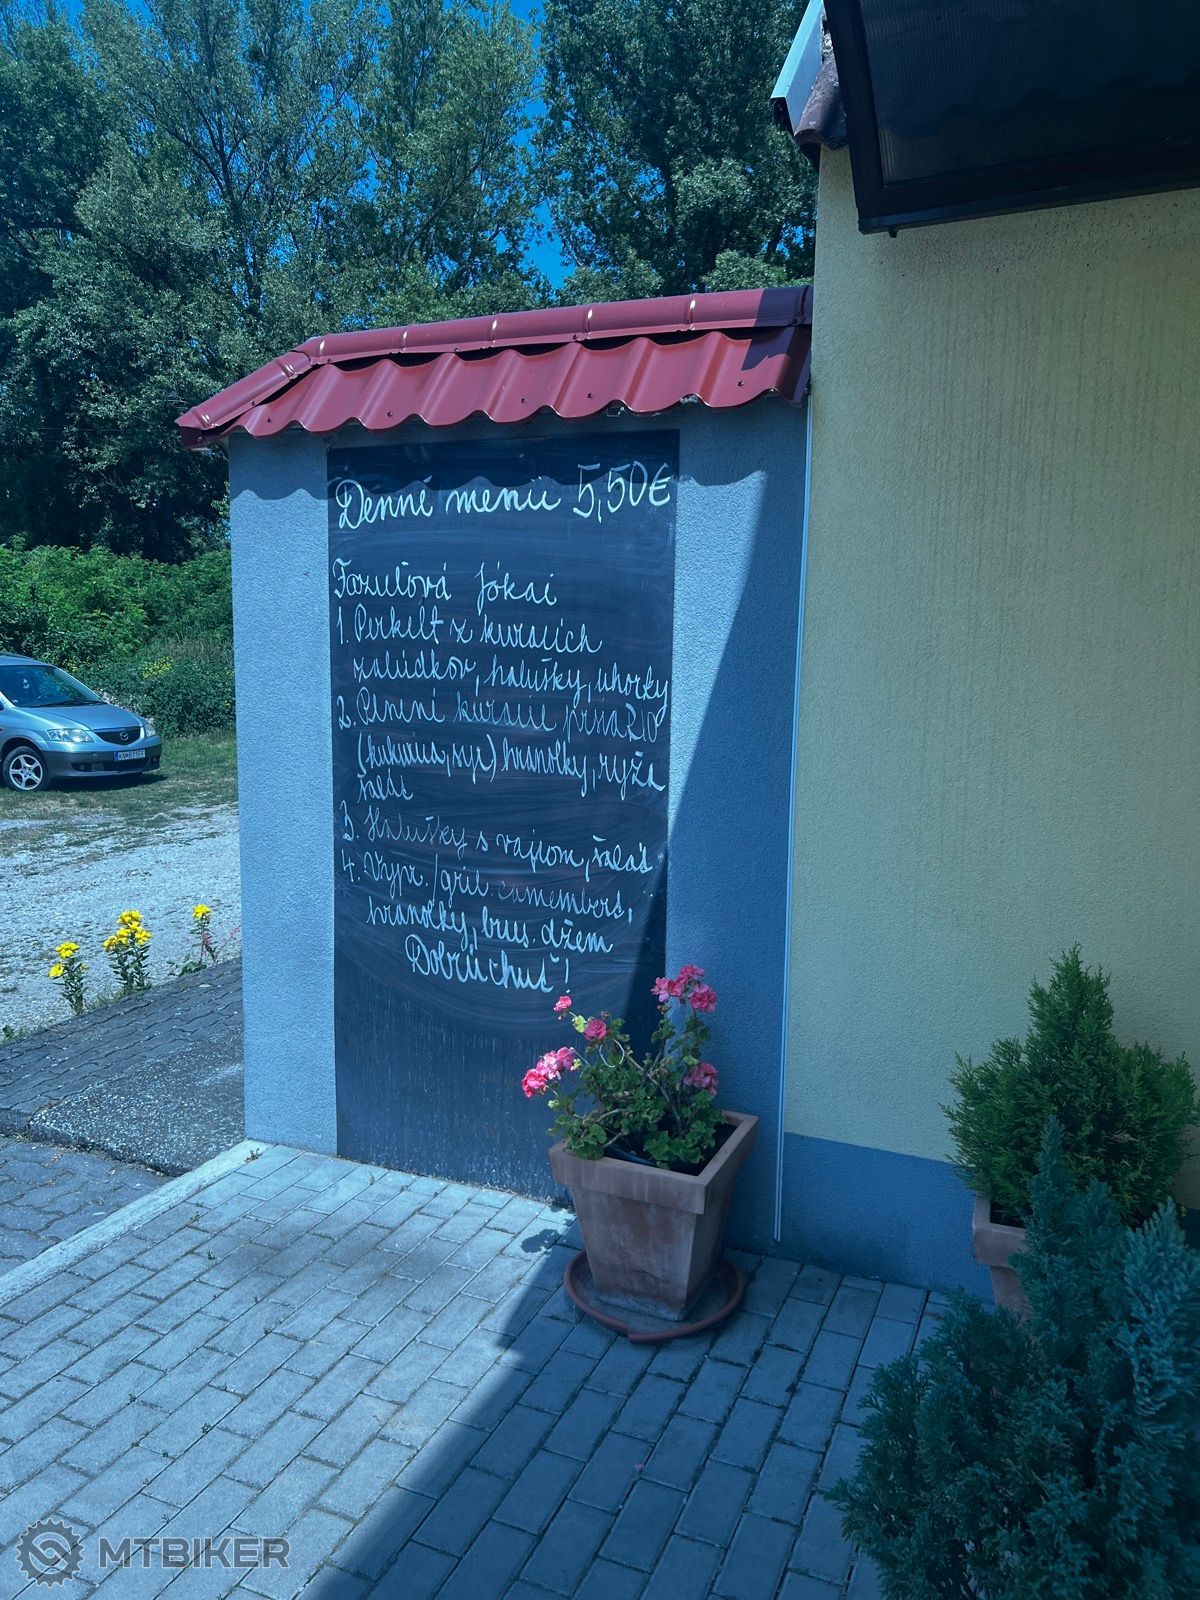 Denné menu 5,50€
Fazuľová Jókai
1. Perkelt z kuracích
žalúdkov, halušky, uhorky
2. Plnené kuracie prsia R10
(kukurica, syr) hranolky, ryža
šalát
3. Halušky s vajcom, šalát
4. Vypr./gril. camembert,
hranolky, brus. džem
Dobrú chuť!
MTBIKER